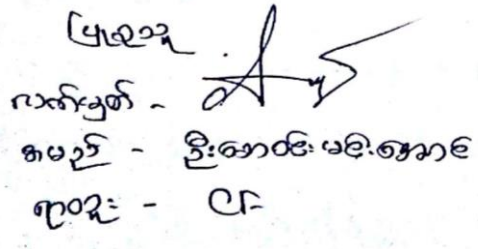 ပြုသူ
လက်မှတ် -
အမည် - ဦးအောင်မင်းအောင်
ရာထူး - ငြိ-